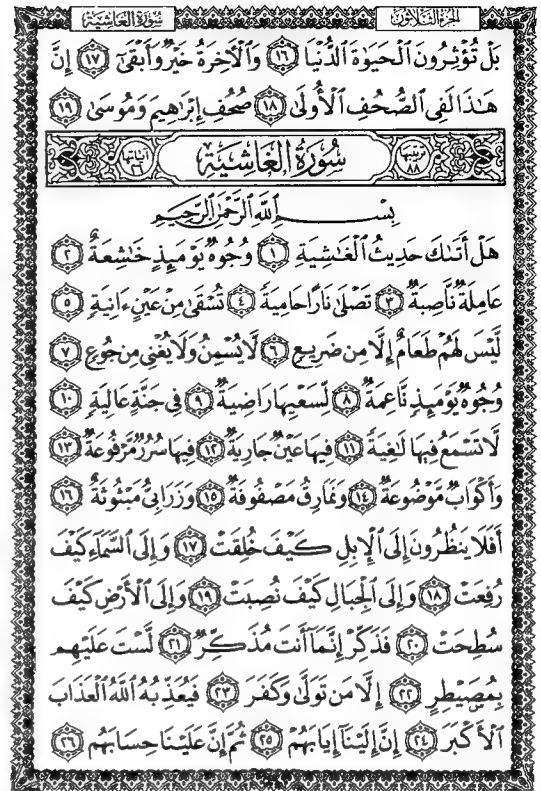 سُورَةُ الغَاشِيَةِ
الجُزْءُ الثَّلَاثُونَ
بَلْ تُؤْثِرُونَ ٱلْحَيَوٰةَ ٱلدُّنْيَا ١٦ وَٱلْأَخِرَةُ خَيْرٌ وَأَبْقَىٰٓ ١٧ إِنَّ
هَٰذَا لَفِى ٱلصُّحُفِ ٱلْأُولَىٰ ١٨ صُحُفِ إِبْرَٰهِيمَ وَمُوسَىٰ ١٩
ترتيبها ٨٨
سُورَةُ الغَاشِيَةِ
آياتها ٢٦
بِسْمِ ٱللَّهِ ٱلرَّحْمَٰنِ ٱلرَّحِيمِ
هَلْ أَتَىٰكَ حَدِيثُ ٱلْغَٰشِيَةِ ١ وُجُوهٌ يَوْمَئِذٍ خَٰشِعَةٌ ٢
عَامِلَةٌ نَّاصِبَةٌ ٣ تَصْلَىٰ نَارًا حَامِيَةً ٤ تُسْقَىٰ مِنْ عَيْنٍ ءَانِيَةٍ ٥
لَّيْسَ لَهُمْ طَعَامٌ إِلَّا مِن ضَرِيعٍ ٦ لَّا يُسْمِنُ وَلَا يُغْنِى مِن جُوعٍ ٧
وُجُوهٌ يَوْمَئِذٍ نَّاعِمَةٌ ٨ لِّسَعْيِهَا رَاضِيَةٌ ٩ فِى جَنَّةٍ عَالِيَةٍ ١٠
لَّا تَسْمَعُ فِيهَا لَٰغِيَةً ١١ فِيهَا عَيْنٌ جَارِيَةٌ ١٢ فِيهَا سُرُرٌ مَّرْفُوعَةٌ ١٣
وَأَكْوَابٌ مَّوْضُوعَةٌ ١٤ وَنَمَارِقُ مَصْفُوفَةٌ ١٥ وَزَرَابِىُّ مَبْثُوثَةٌ ١٦
أَفَلَا يَنظُرُونَ إِلَى ٱلْإِبِلِ كَيْفَ خُلِقَتْ ١٧ وَإِلَى ٱلسَّمَآءِ كَيْفَ
رُفِعَتْ ١٨ وَإِلَى ٱلْجِبَالِ كَيْفَ نُصِبَتْ ١٩ وَإِلَى ٱلْأَرْضِ كَيْفَ
سُطِحَتْ ٢٠ فَذَكِّرْ إِنَّمَآ أَنتَ مُذَكِّرٌ ٢١ لَّسْتَ عَلَيْهِم
بِمُصَيْطِرٍ ٢٢ إِلَّا مَن تَوَلَّىٰ وَكَفَرَ ٢٣ فَيُعَذِّبُهُ ٱللَّهُ ٱلْعَذَابَ
ٱلْأَكْبَرَ ٢٤ إِنَّ إِلَيْنَآ إِيَابَهُمْ ٢٥ ثُمَّ إِنَّ عَلَيْنَا حِسَابَهُم ٢٦